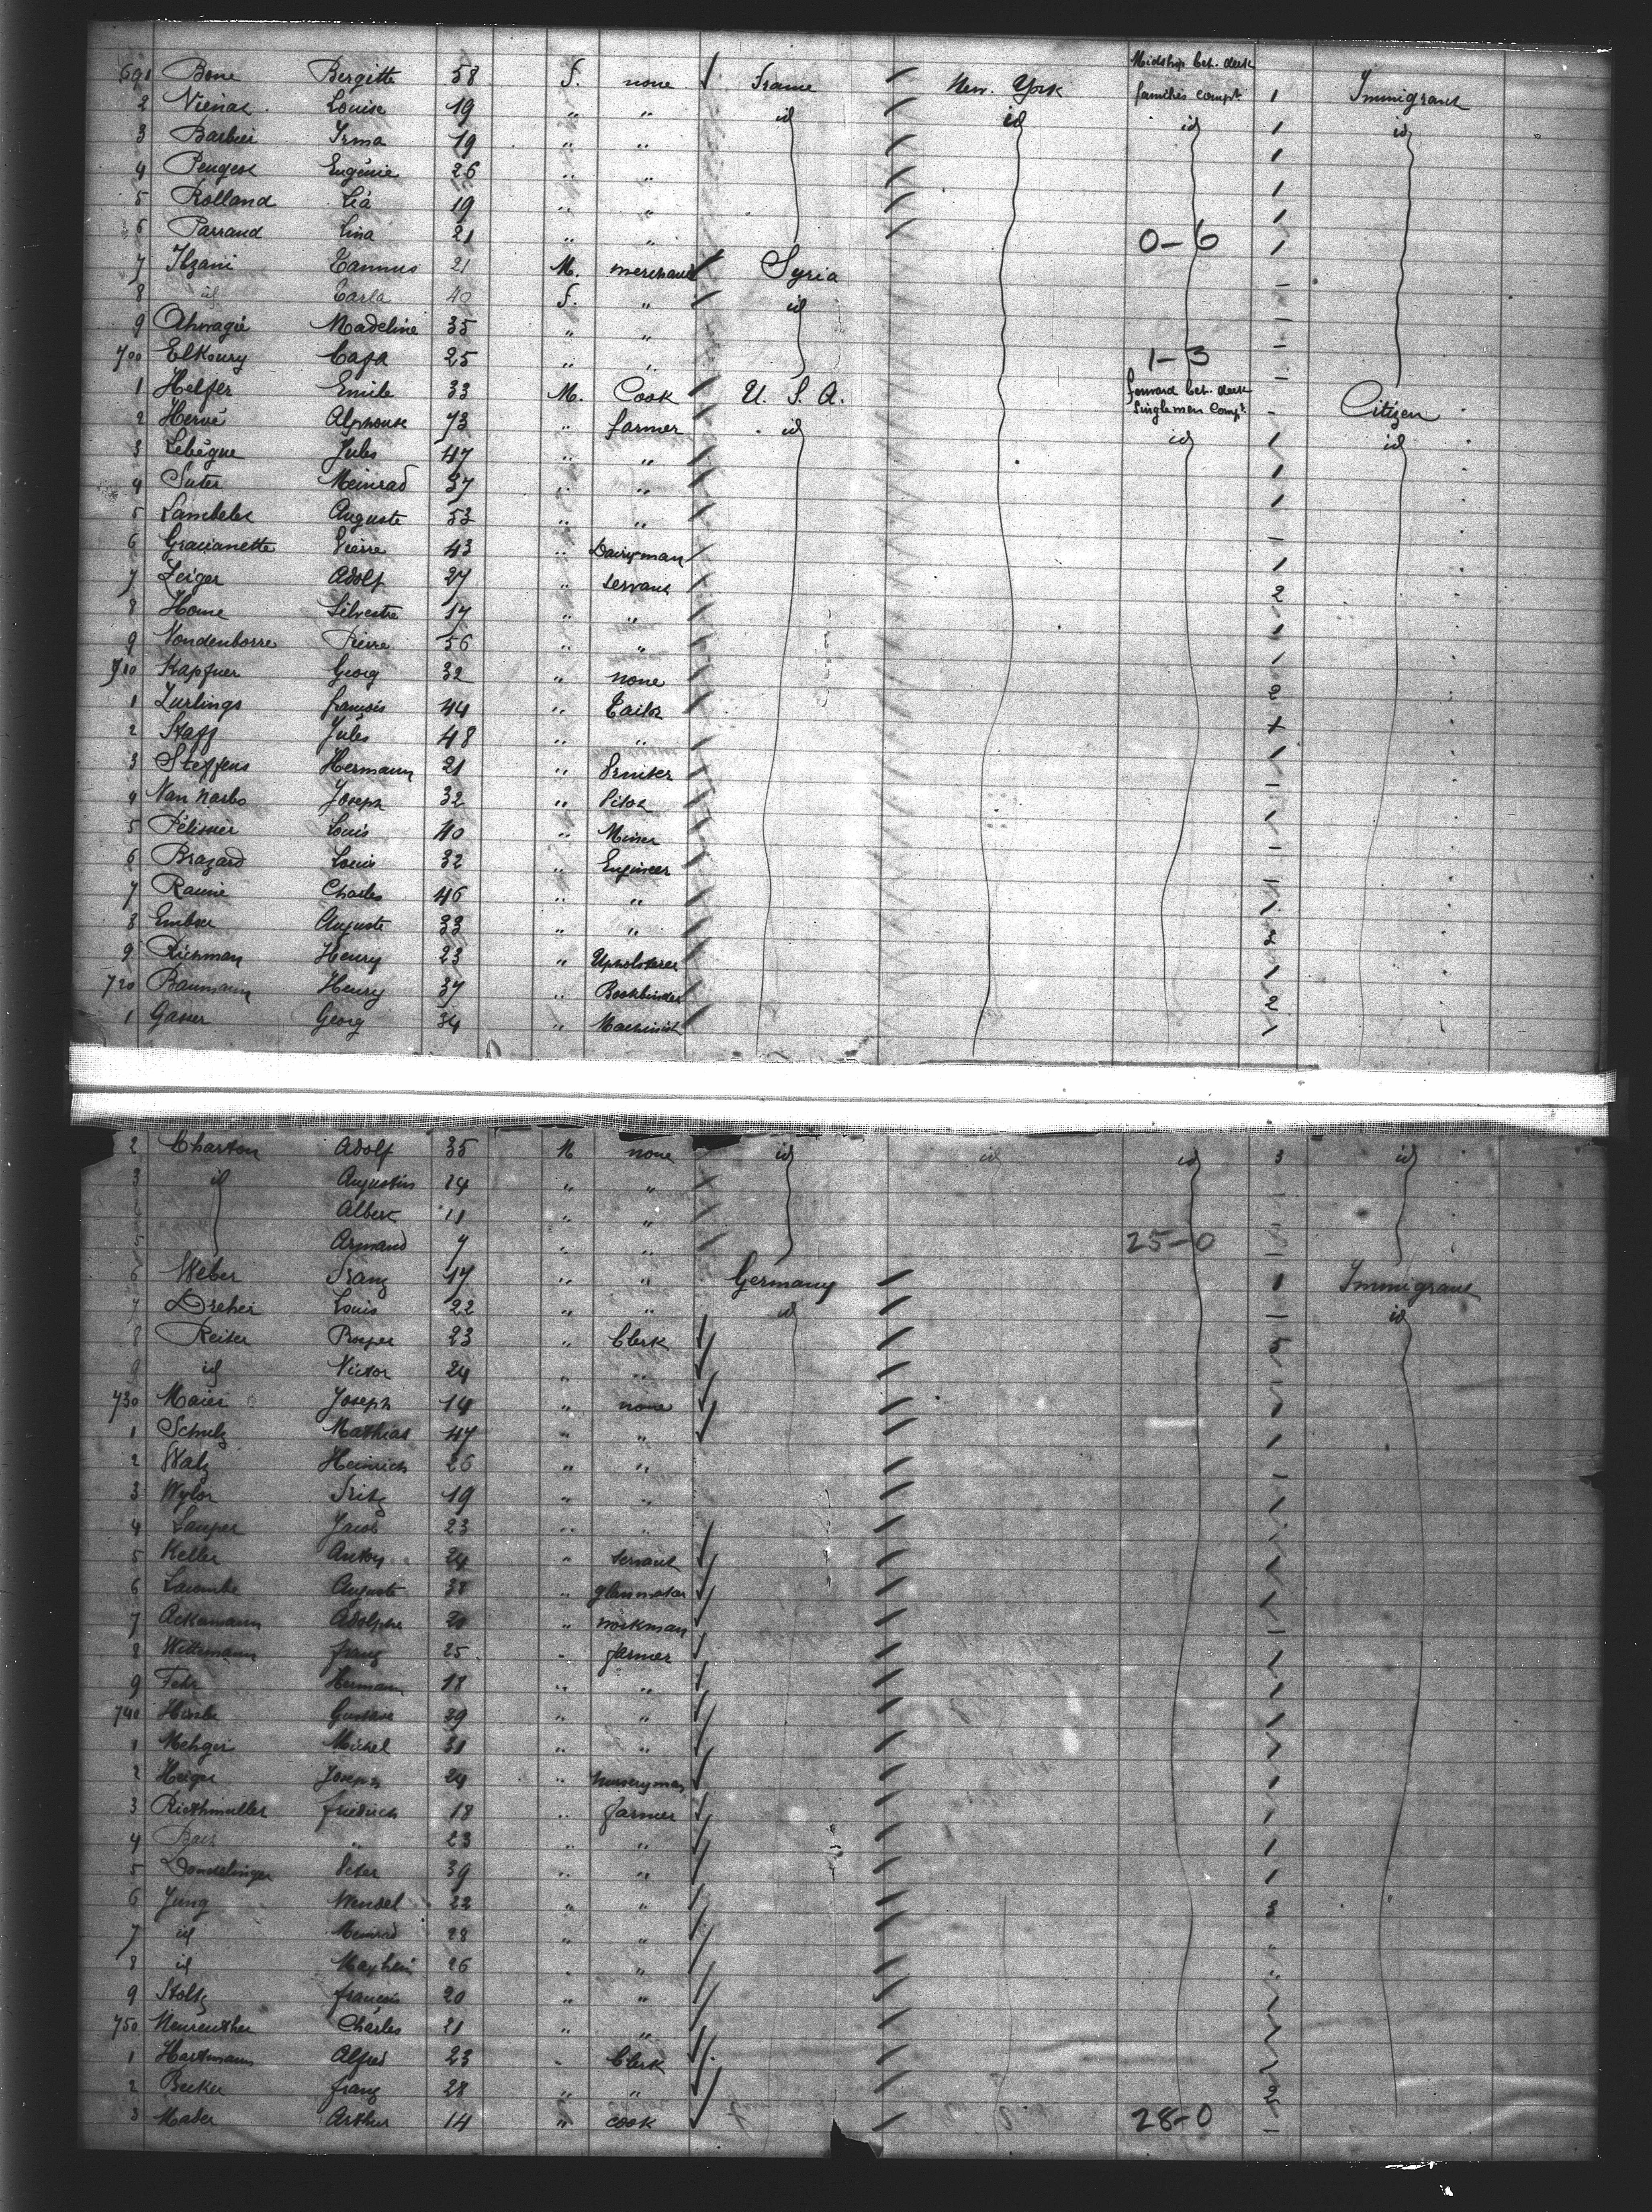 Midship bet. deck
691 Bone Bergitte 58 F. none France New York families compt 1 Immigrant
2 Louise 19 " " id id id 1 id
3 Barbier Irma 19 " " 1
4 Eugénie 26 " " 1
5 Rolland Léa 19 " " 1
6 Parrand Lina 21 " " 0-6 1
7 Tannus 21 M. merchant Syria
8 id Tarla 40 F. " id
9 Madeline 35 " "
700 ElKoury 25 " " 1-3
forward bet. deck
1 Helfer Emile 33 M. Cook U. S. A. Singlemen Compt. Citizen
2 Hervé Alphonse 73 " farmer id id 1 id
3 Lebègue Jules 47 " " 1
4 Suter Meinrad 37 " " 1
5 Lambelet Auguste 53 " "
6 Gracianette Pierre 43 " Dairyman 1
7 Zeiger Adolf 27 " servant 2
8 Home Silvestre 17 " " 1
9 Vondenborre Pierre 56 " " 1
710 Kapfner Georg 32 " none 2
1 Zurlings françois 44 " Tailor
2 Staff Jules 48 " " 1
3 Steffens Hermann 21 "
4 Joseph 32 "
5 Pélissier Louis 40 " Miner
6 Brazard Louis 32 " Engineer
7 Charles 46 " "
8 Auguste 33 " " 2
9 Richman Henry 23 " Upholsterer 1
720 Baumann Henry 37 " Bookbinder 2
1 Gasser Georg 34 " Machinist
2 Charton Adolf 35 M none id id id 3 id
3 id Augustin 14 " "
Albert 11 " "
Armand 7 " " 25-0
6 Weber Franz 17 " " Germany 1 Immigrant
7 Dreher Louis 22 " " id id
8 Reiter 23 " Clerk 5
9 id Victor 24 " "
730 Maier Joseph 14 " none
1 Schulz Mathias 47 " " 1
2 Walz Heinrich 26 " "
3 Wyler Fritz 19 " "
4 Lauper Jacob 23 " "
5 Keller Anton 24 " servant
6 Lacombe Auguste 38 " glassmaker
7 Ackermann Adolphe 20 " workman
8 Wittmann franz 25 " farmer
9 Fehr Hermann 18 " "
740 Gustave 29 " "
1 Michel 31 " "
2 Joseph 24 " Nurseryman
3 Riethmuller friedrich 18 " farmer
4 " 23 " "
5 Peter 39 " "
6 Jung Wendel 22 " " 3
7 id Meinrad 28 " " "
8 id 26 " " "
9 Stoltz françois 20 " "
750 Neureuther Charles 21 " "
1 Hartmann Alfred 23 " Clerk
2 Becker franz 28 " " 2
3 Mader Arthur 14 " cook 28-0